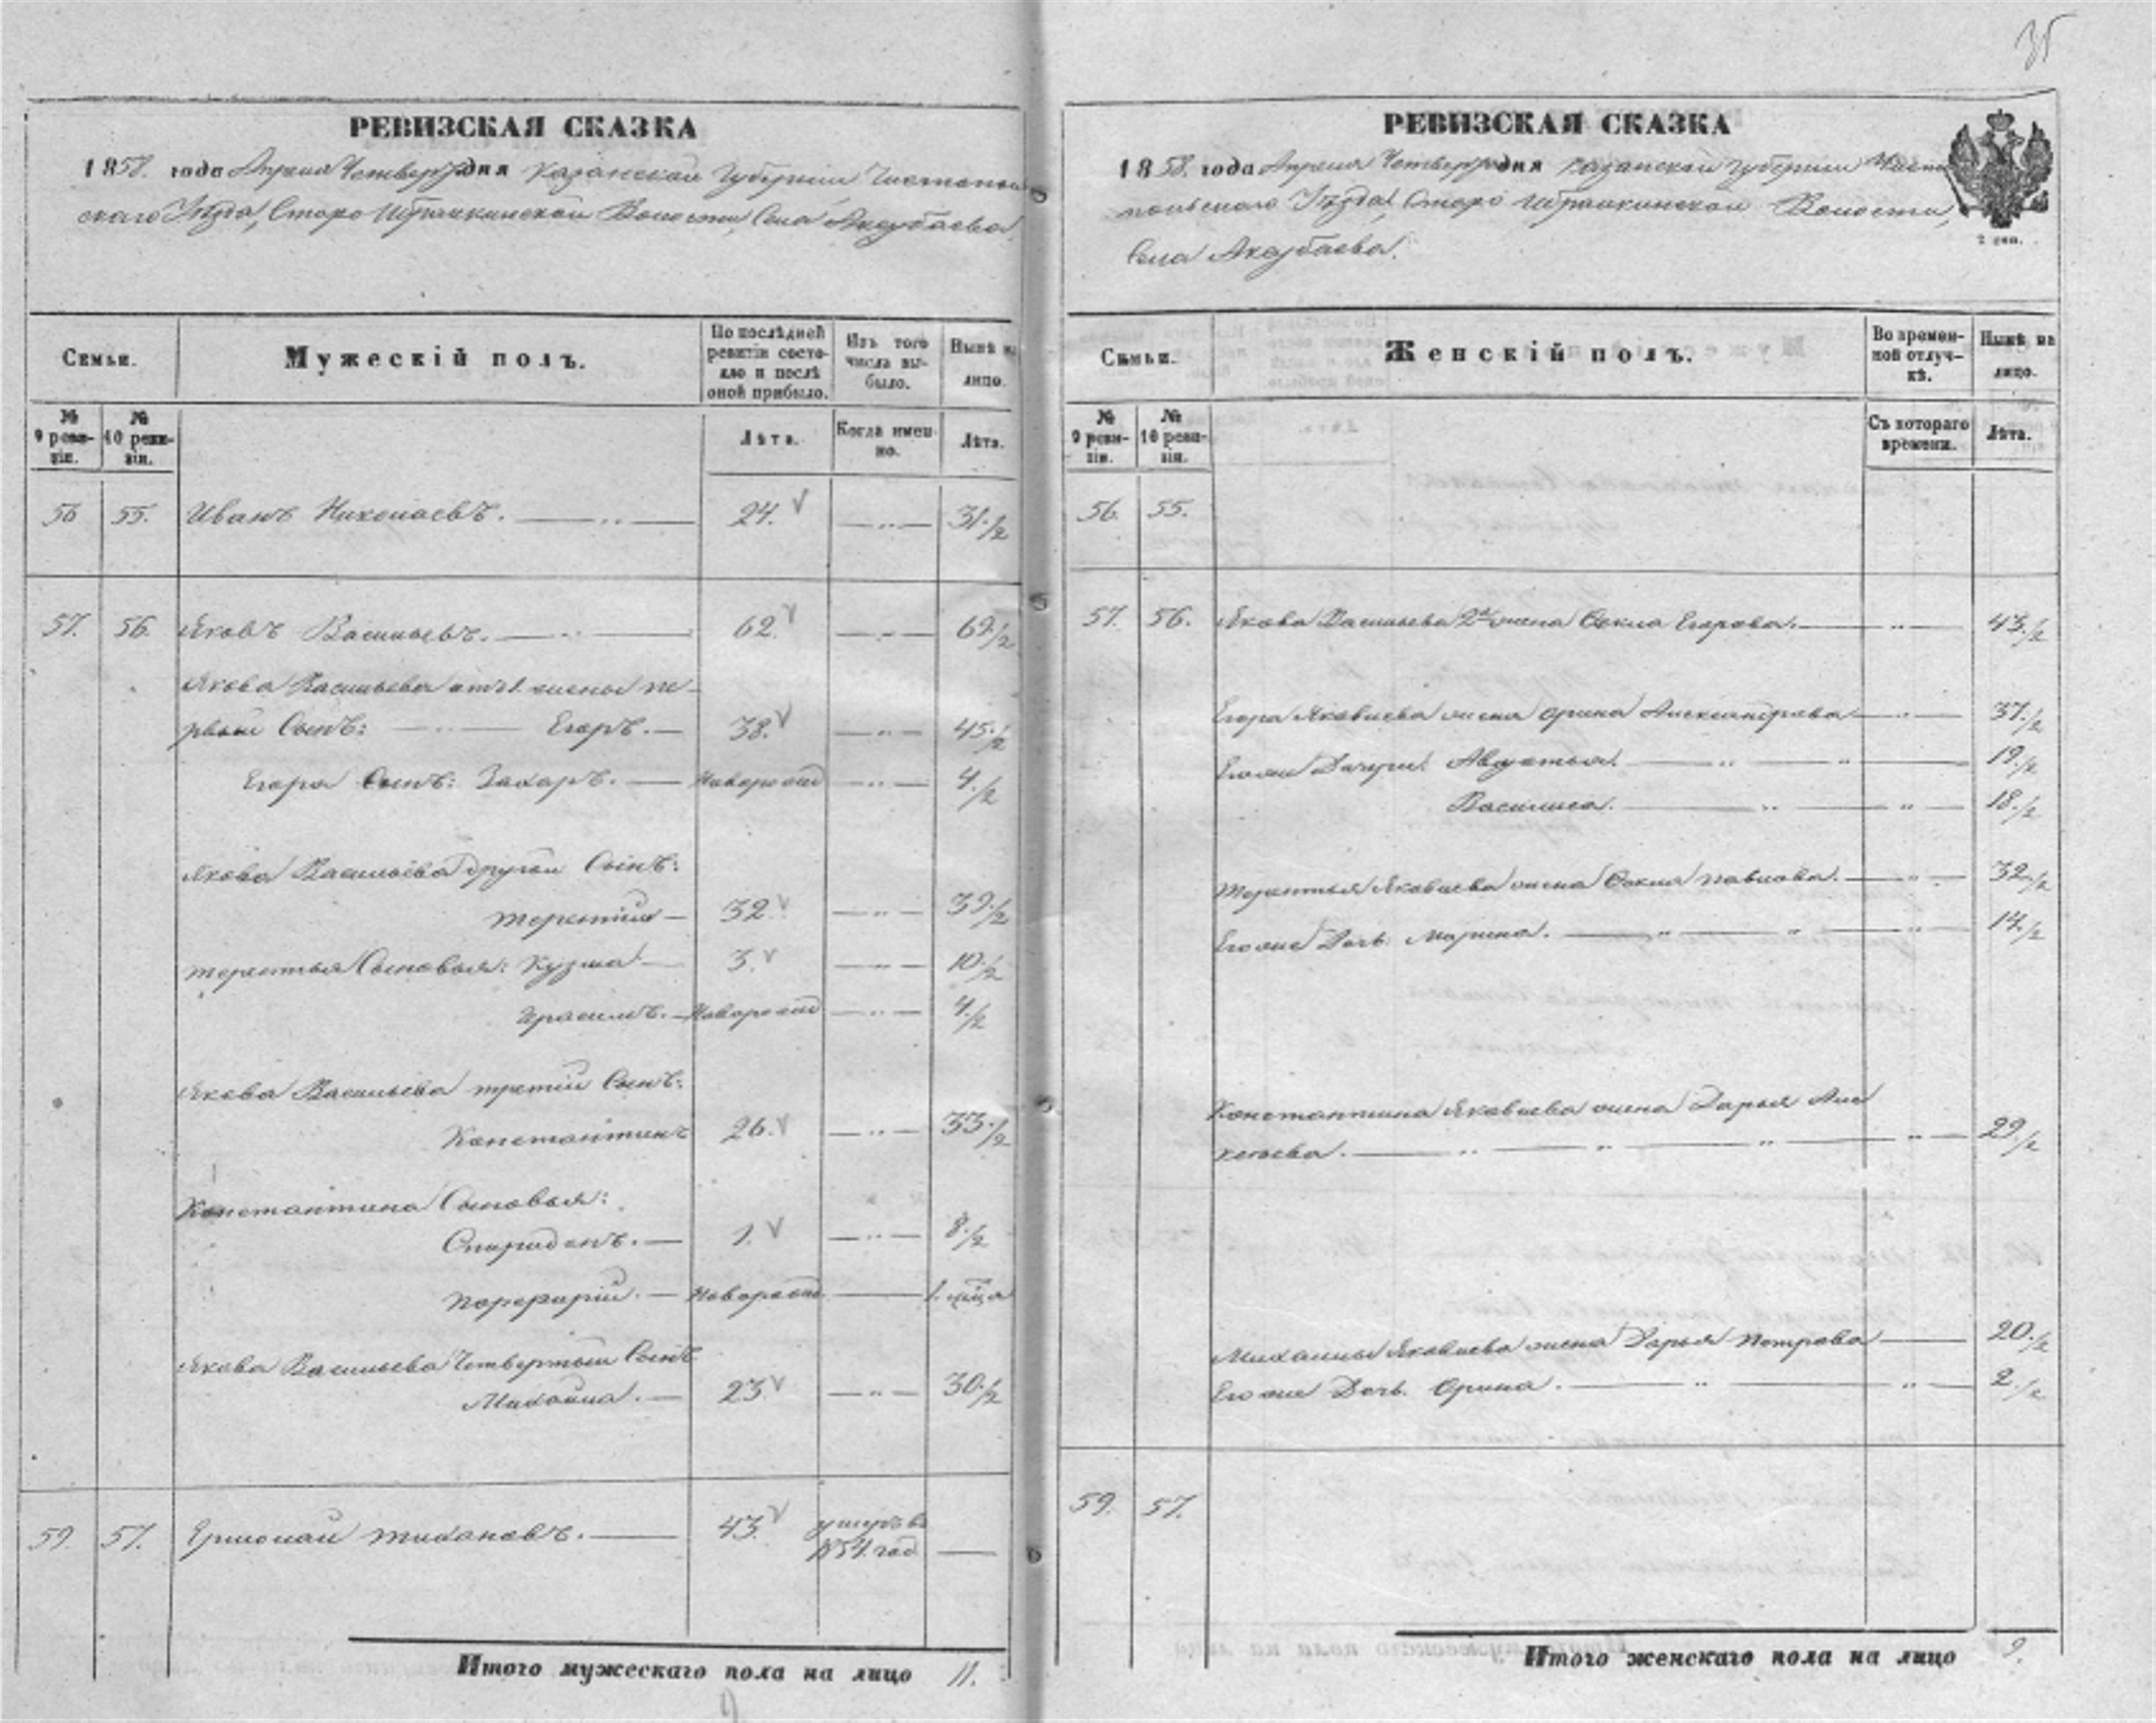 35
РЕВИЗСКАЯ СКАЗКА
1858. года Апреля Четверт дня Казанской Губерніи, Чистополь
скаго Уѣзда, Старо Волости, Села
Семьи.
Мужескій полъ.
По послѣдней
ревизіи состо-
яло и послѣ
оной прибыло.
Изъ того
числа вы-
было.
Нынѣ на
лицо.
№
9 реви-
зіи.
№
10 реви-
зіи.
Лѣта.
Когда имен-
но.
Лѣта.
56 55. Иванъ Николаевъ. 24. 31./2
57. 56. Яковъ Васильевъ. 62. 69./2
Якова Васильева отъ 1. жены пе-
рвый Сынъ: Егоръ. 38. 45./2
Егора Сынъ: Захаръ. Новорожд 4./2
Якова Васильева другой Сынъ:
Терентій 32. 39./2
Терентья Сыновья: Кузма 3. 10./2
Новорожд 4./2
Якова Васильева третій Сынъ:
Константинъ 26. 33./2
Константина Сыновья:
Спиридонъ. 1. 8./2
Порфирій. Новорожд 1. мѣца
Якова Васильева Четвертый Сынъ
Михайла. 23. 30./2
59. 57. Ермолай Тихановъ. 43. умеръ въ
1854. год
Итого мужескаго пола на лицо 11.
РЕВИЗСКАЯ СКАЗКА
1858. года Апреля Четверт дня Казанской Губерніи Чисто
польскаго Уѣзда, Старо Волости,
Села
2 сен.
Семьи.
Женскій полъ.
Во времен-
ной отлуч-
кѣ.
Нынѣ на
лицо.
№
9 реви-
зіи.
№
10 реви-
зіи.
Съ котораго
времени.
Лѣта.
56. 55.
57. 56. Якова Васильева 2я жена Фекла Егорова. 43./2
Егора Яковлева жена Орина Александрова 37./2
Его же Дочери: Авдотья. 19./2
Василиса. 18./2
Терентья Яковлева жена Фекла Павлова. 32./2
Его же Дочь Марина. 14./2
Константина Яковлева жена Дарья Але
ксѣева. 29./2
Михайлы Яковлева жена Дарья Петрова 20./2
Его же Дочь. Орина. 2./2
59. 57.
Итого женскаго пола на лицо 9.